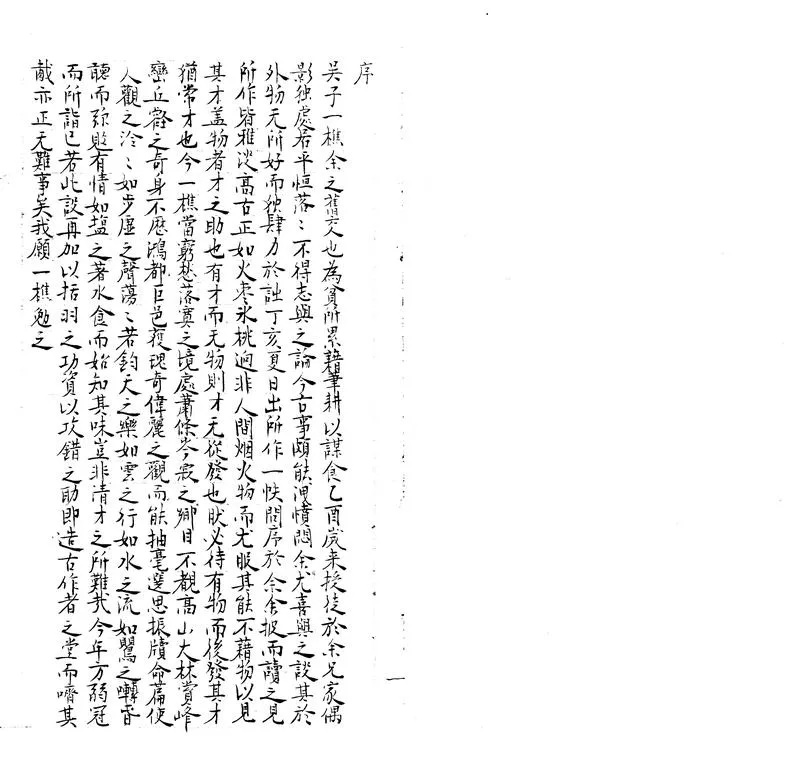 序
吴子一樵余之舊人也為貧所累藉筆耕以謀食乙酉歲来授徒於余兄家偶
影独處居平恒落〻不得志與之論今古事頗能洩憤悶余尤喜與之談其於
外物无所好而独肆力於詩丁亥夏日出所作一帙問序於余余披而讀之見
所作皆雅淡高古正如火枣氷桃逈非人間烟火物而尤服其能不藉物以見
其才盖物者才之助也有才而无物則才无從發也肰必待有物而後發其才
猶常才也今一樵當窮愁落寞之境處蕭條岑寂之鄉目不覩高山大林賞峰
巒丘壑之奇身不歷鴻都巨邑獲瑰奇偉麗之觀而能抽毫選思振牘命篇使
人觀之泠〻如步虛之聲蕩〻若鈞天之樂如雲之行如水之流如鸎之囀昏
聽而弥有情如塩之著水食而始知其味豈非清才之所難㢤今年方弱冠
而所詣已若此設再加以括羽之功資以攻錯之助即造古作者之堂而嚌其
胾亦正无難事矣我願一樵勉之
一